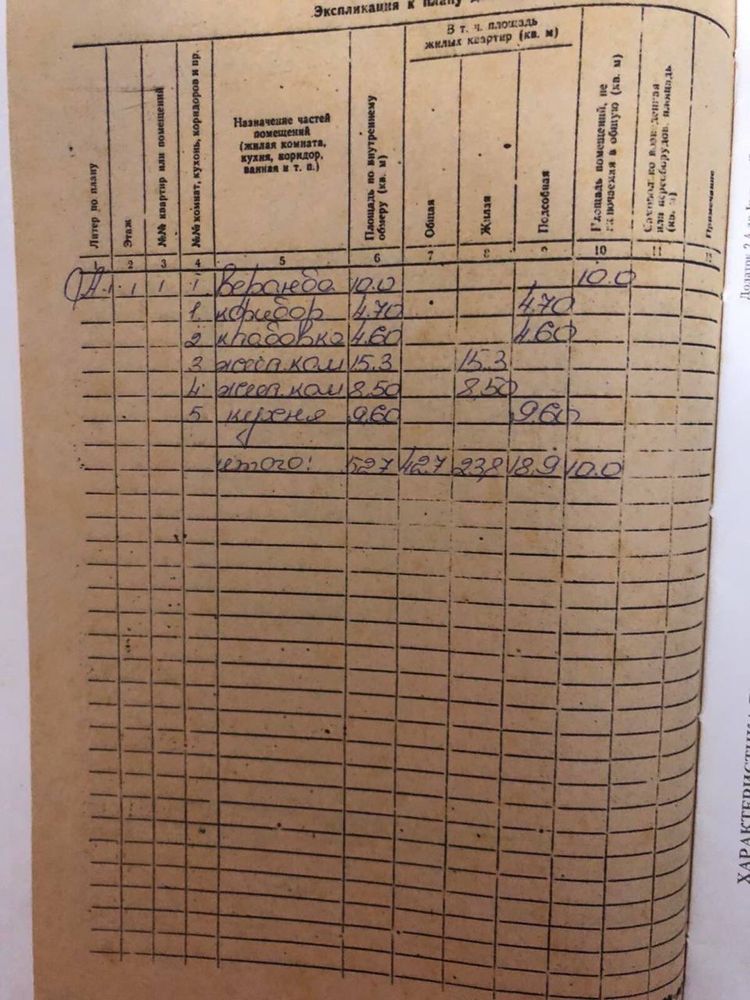 Экспликация к плану
В т. ч. площадь
жилых квартир (кв. м)
Литер по плану
Этаж
№№ квартир или помещений
№№ комнат, кухонь, коридоров и пр.
Назначение частей
помещений
(жилая комната,
кухня, коридор,
ванная и т. п.)
Площадь по внутреннему
обмеру (кв. м)
Общая
Жилая
Подсобная
Площадь помещений, не
включаемая в общую (кв. м)
Самовольно возведенная
или переоборудов. площадь
(кв. м)
Примечание
2 3 4 5 6 7 8 9 10 11
1 1 1 веранда 10.0 10.0
1 коридор 4.70 4.70
2 кладовка 4.60 4.60
3 жил.ком 15.3 15.3
4 жил.ком 8.50 8.50
5 кухня 9.60 9.60
итого: 52.7 42.7 23,8 18.9 10.0
Додаток 2
ХАРАКТЕРИСТИК